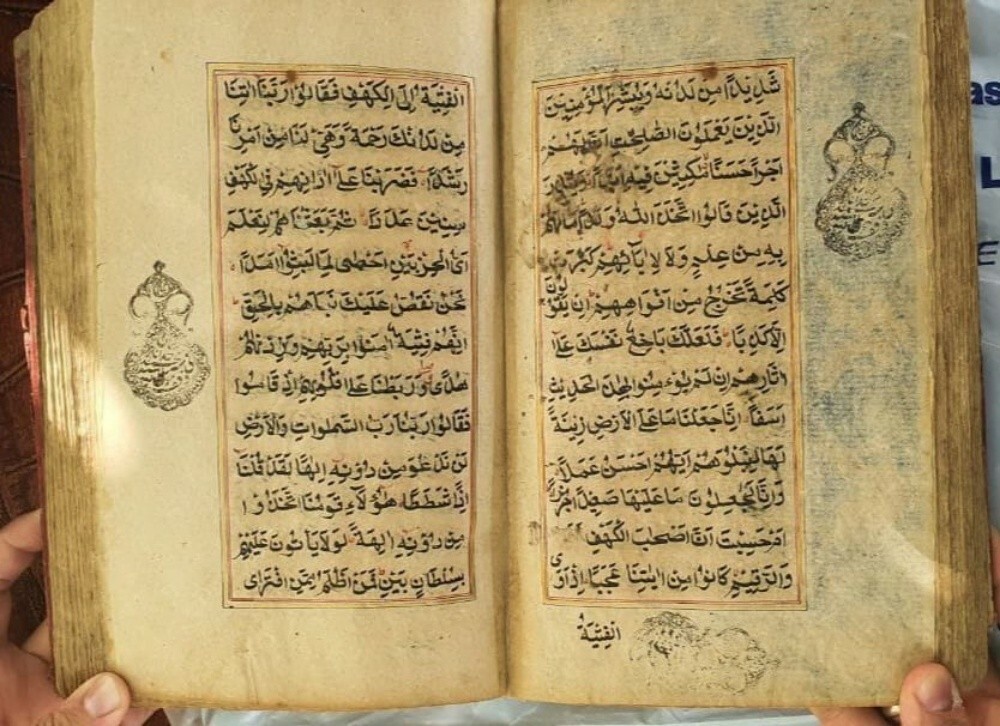 شَدِيدًا مِن لَدُنْهُ وَيُبَشِّرَ الْمُؤْمِنِينَ
الَّذِينَ يَعْمَلُونَ الصَّلِحَتِ اَنَّ لَهُمْ
اَجْرًا حَسَنًا مَّاكِثِينَ فِيهِ اَبَدًا وَيُنْذِرَ
الَّذِينَ قَالُوا اتَّخَذَ اللهُ وَلَدًا مَا لَهُمْ
بِهِ مِنْ عِلْمٍ وَلَا لِاٰبَائِهِمْ كَبُرَتْ
كَلِمَةً تَخْرُجُ مِنْ اَفْوَاهِهِمْ اِنْ يَقُولُونَ
اِلَّا كَذِبًا فَلَعَلَّكَ بَاخِعٌ نَفْسَكَ عَلَى
اٰثَارِهِمْ اِنْ لَمْ يُؤْمِنُوا بِهٰذَا الْحَدِيثِ
اَسَفًا اِنَّا جَعَلْنَا مَا عَلَى الْاَرْضِ زِينَةً
لَهَا لِنَبْلُوَهُمْ اَيُّهُمْ اَحْسَنُ عَمَلًا
وَاِنَّا لَجَاعِلُونَ مَا عَلَيْهَا صَعِيدًا جُرُزًا
اَمْ حَسِبْتَ اَنَّ اَصْحٰبَ الْكَهْفِ
وَالرَّقِيمِ كَانُوا مِنْ اٰيٰتِنَا عَجَبًا اِذْ اَوَى
الْفِتْيَةُ
الْفِتْيَةُ اِلَى الْكَهْفِ فَقَالُوا رَبَّنَا اٰتِنَا
مِنْ لَدُنْكَ رَحْمَةً وَهَيِّئْ لَنَا مِنْ اَمْرِنَا
رَشَدًا فَضَرَبْنَا عَلَى اٰذَانِهِمْ فِي الْكَهْفِ
سِنِينَ عَدَدًا ثُمَّ بَعَثْنَاهُمْ لِنَعْلَمَ
اَيُّ الْحِزْبَيْنِ اَحْصَى لِمَا لَبِثُوا اَمَدًا
نَحْنُ نَقُصُّ عَلَيْكَ نَبَاَهُمْ بِالْحَقِّ
اِنَّهُمْ فِتْيَةٌ اٰمَنُوا بِرَبِّهِمْ وَزِدْنَاهُمْ
هُدًى وَرَبَطْنَا عَلَى قُلُوبِهِمْ اِذْ قَامُوا
فَقَالُوا رَبُّنَا رَبُّ السَّمٰوَاتِ وَالْاَرْضِ
لَنْ نَدْعُوَ مِنْ دُونِهِ اِلٰهًا لَقَدْ قُلْنَا
اِذًا شَطَطًا هٰؤُلَاءِ قَوْمُنَا اتَّخَذُوا
مِنْ دُونِهِ اٰلِهَةً لَوْلَا يَاْتُونَ عَلَيْهِمْ
بِسُلْطَانٍ بَيِّنٍ فَمَنْ اَظْلَمُ مِمَّنِ افْتَرَى